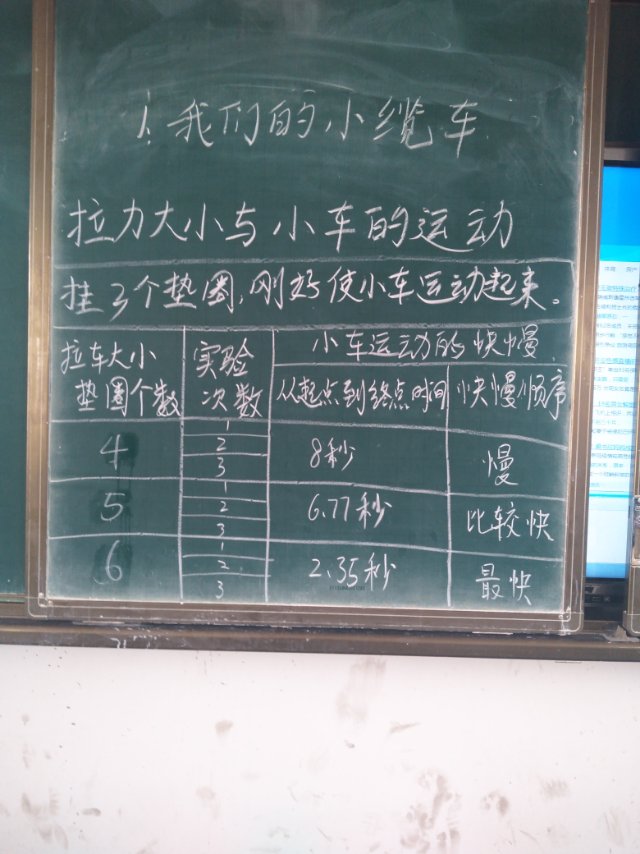 1. 我们的小缆车
拉力大小与小车的运动
挂3个垫圈,刚好使小车运动起来。
拉车大小
垫圈个数
实验
次数
小车运动的快慢
从起点到终点时间
快慢顺序
4
1
2
3
8秒
慢
5
1
2
3
6.77秒
比较快
6
1
2
3
2.35秒
最快